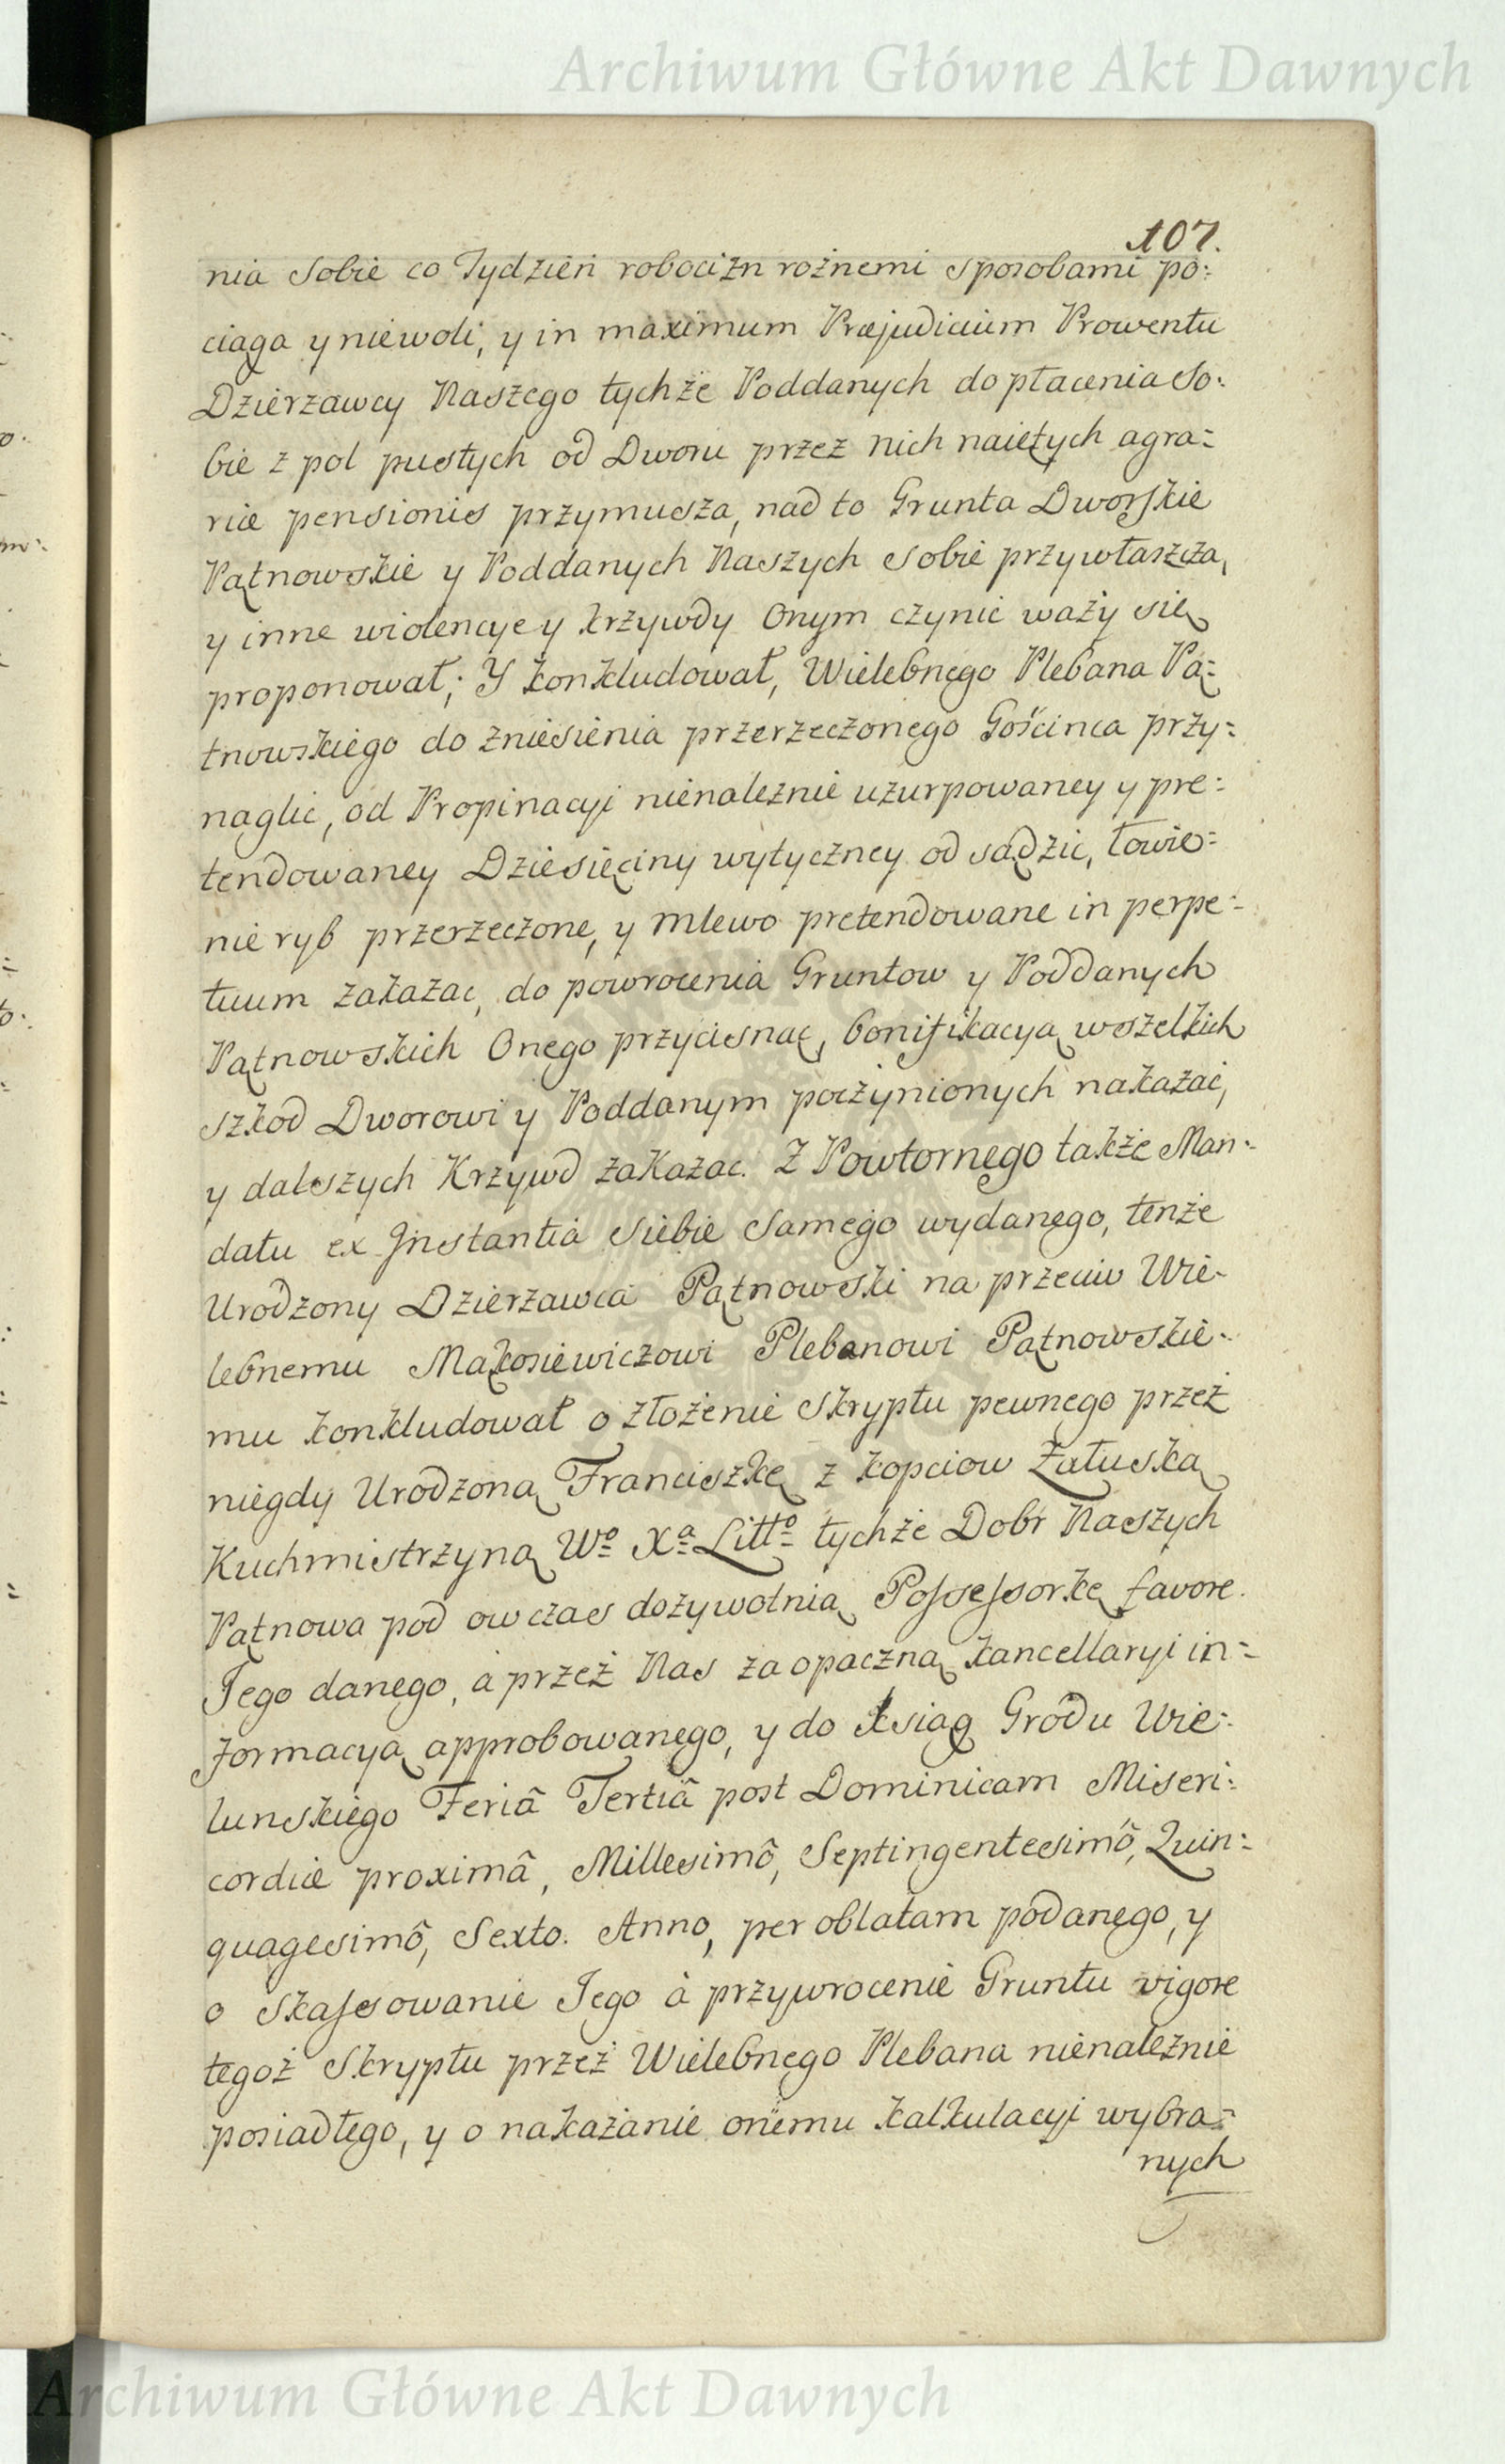 Archiwum Główne Akt Dawnych
107.
nia sobie co Tydzień robocizn rożnemi sposobami po:
ciąga y niewoli, y in maximum Præjudicium Prowentu
Dzierzawcy Naszego tychże Poddanych do płacenia so:
bie z pol pustych od Dworu przez nich naiętych agra=
riæ pensionis przymusza, nad to Grunta Dworskie
Pątnowskie y Poddanych Naszych sobie przywłaszcza,
y inne wiolencye y krzywdy Onym czynić waży się
proponował; Y konkludował, Wielebnego Plebana Pą=
tnowskiego do zniesienia przerzeczonego Gościnca przy=
naglic, od Propinacyi nienaleznie uzurpowaney y pre:
tendowaney Dziesięciny wytyczney od sądzic, łowie=
nie ryb przerzeczone, y mlewo pretendowane in perpe=
tuum zakazac, do powrocenia Gruntow y Poddanych
Pątnowskich Onego przycisnąć, bonifikacyą wszelkich
szkod Dworowi y Poddanym poczynionych nakazać,
y dalszych Krzywd zakazac. Z Powtornego także Man=
datu ex Instantia siebie samego wydanego, tenże
Urodzony Dzierzawca Pątnowski na przeciw Wie-
lebnemu Makosiewiczowi Plebanowi Pątnowskie-
mu konkludował o złożenie skryptu pewnego przez
niegdy Urodzoną Franciszkę z Kopciow Załuską
Kuchmistrzyną Wº Xª Littº tychże Dobr Naszych
Pątnowa pod owczas dożywotnią Possessorkę favore.
Jego danego, à przez Nas za opaczną kancellaryi in=
formacyą approbowanego, y do Ksiąg Grodu Wie:
lunskiego Feriâ Tertiâ post Dominicam Miseri:
cordiæ proximâ, Millesimô, Septingentesimô, Quin=
quagesimô, Sexto. Anno, per oblatam podanego, y
o skassowanie Jego à przywrocenie Gruntu vigore
tegoż Skryptu przez Wielebnego Plebana nienaleznie
posiadłego, y o nakazanie onemu kalkulacyi wybra=
nych
Archiwum Główne Akt Dawnych